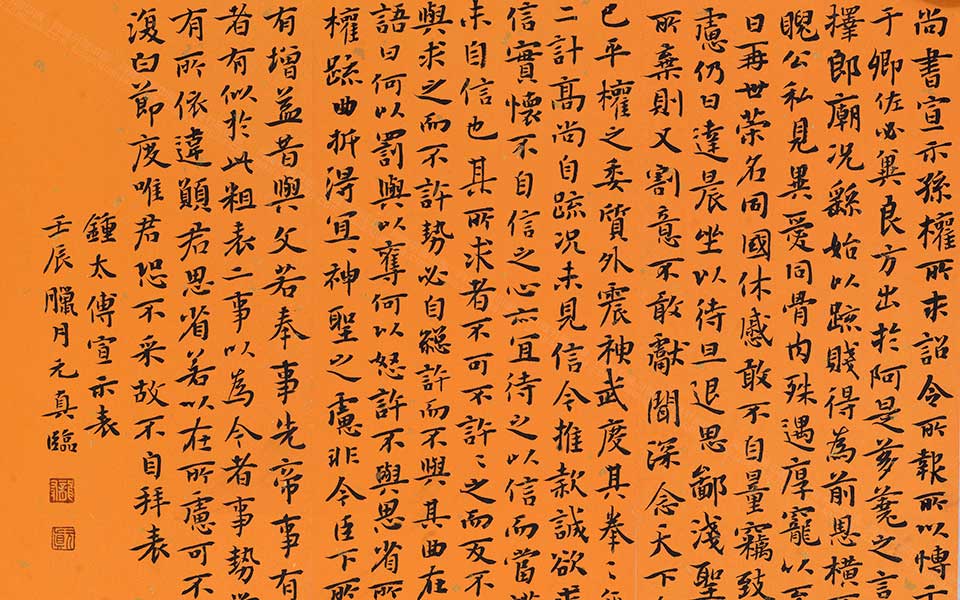 尚書宣示孫權所求詔令所報所以博示
于卿佐必冀良方出於阿是芻蕘之言
擇郎廟況繇始以疏賤得為前恩橫
睨公私見異愛同骨肉殊遇厚寵以至
日再世榮名同國休慼敢不自量竊致
慮仍日達晨坐以待旦退思鄙淺聖
所棄則又割意不敢獻聞深念天下
已平權之委質外震神武度其拳〻
二計高尚自疏況未見信今推款誠欲求
信實懷不自信之心亦宜待之以信而當
未自信也其所求者不可不許〻之而反不
與求之而不許勢必自絕許而不與其曲在
語曰何以罰與以奪何以怒許不與思省所
權疏曲折得宜神聖之慮非今臣下所
有增益昔與文若奉事先帝事有
者有似於此粗表二事以為今者事勢
有所依違願君思省若以在所慮可不
復白節度唯君恐不采故不自拜表
鍾太傅宣示表
壬辰臘月元真臨